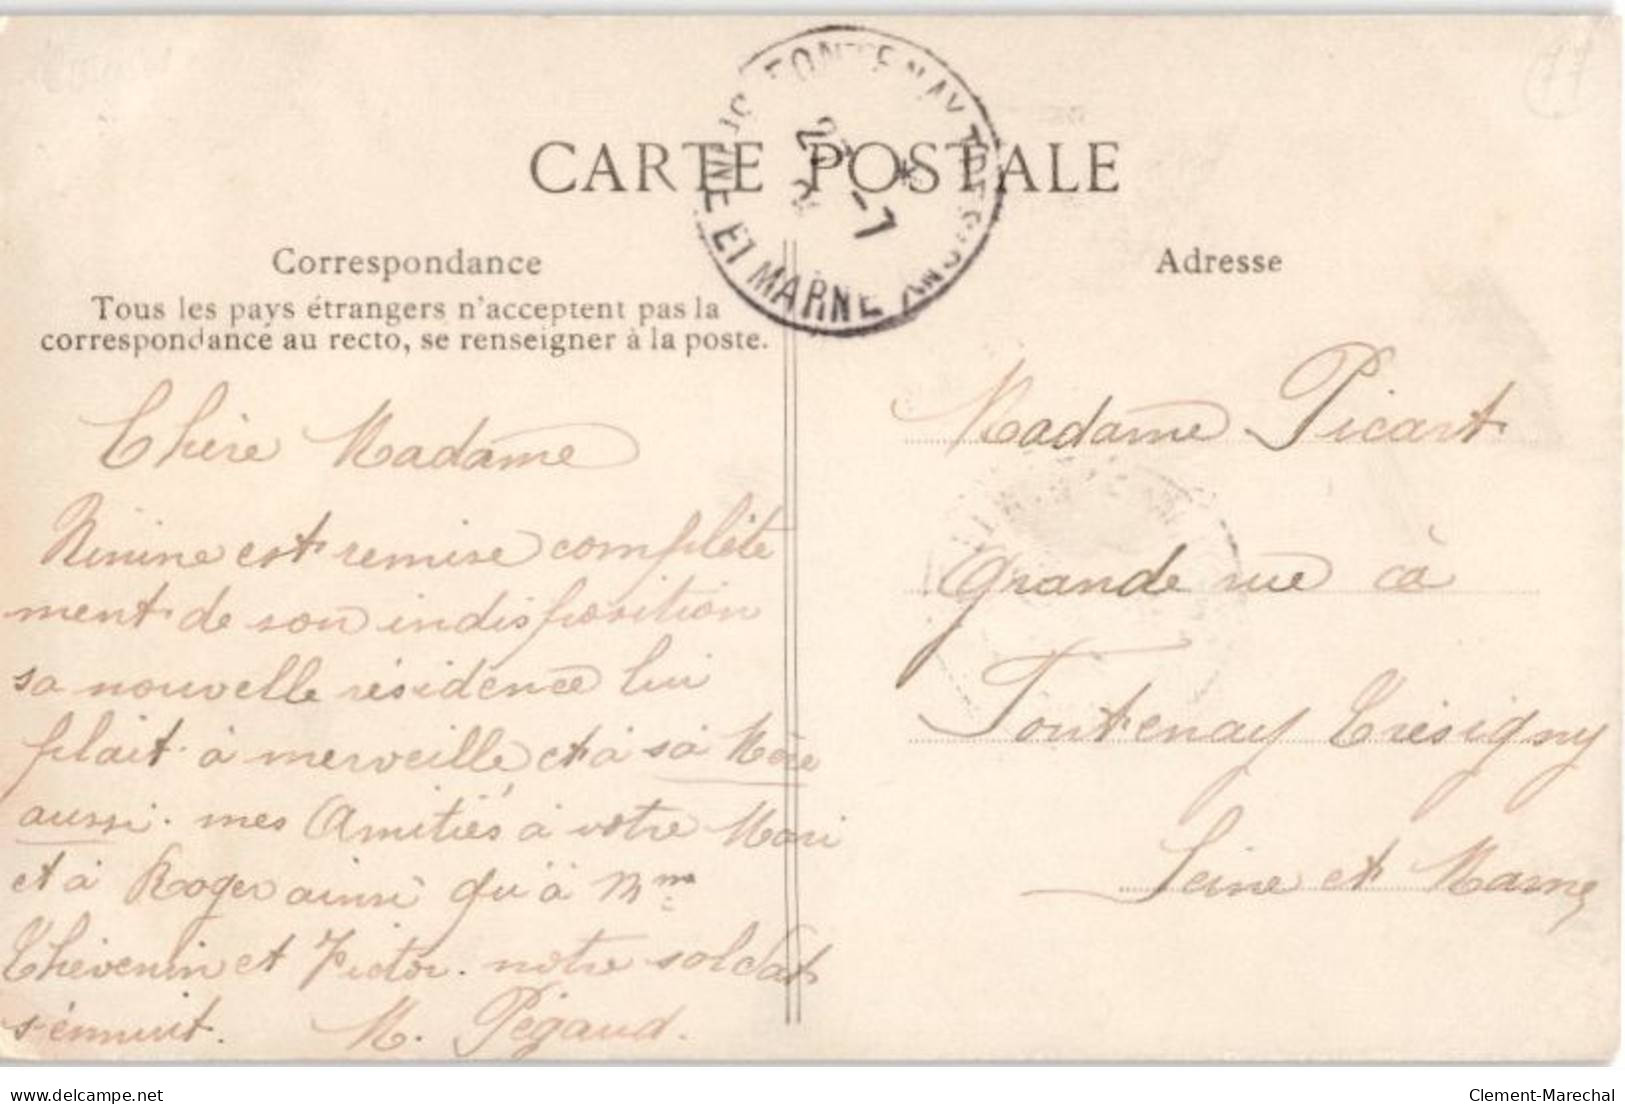 77
FONTENAY TRESIGNY
23 -7
SEINE ET MARNE
CARTE POSTALE
Correspondance
Tous les pays étrangers n'acceptent pas la
correspondance au recto, se renseigner à la poste.
Chère Madame
Ninine est remise complète
ment de son indisposition
sa nouvelle résidence lui
plait à merveille et à sa Mère
aussi. mes Amitiés à votre Mari
et à Roger ainsi qu'à Mme
Thévenin et Victor. notre soldat
s'ennuit. M. Pégaud.
Adresse
Madame Picart
Grande rue à
Fontenay Trésigny
Seine et Marne
delcampe.net
Clement-Marechal